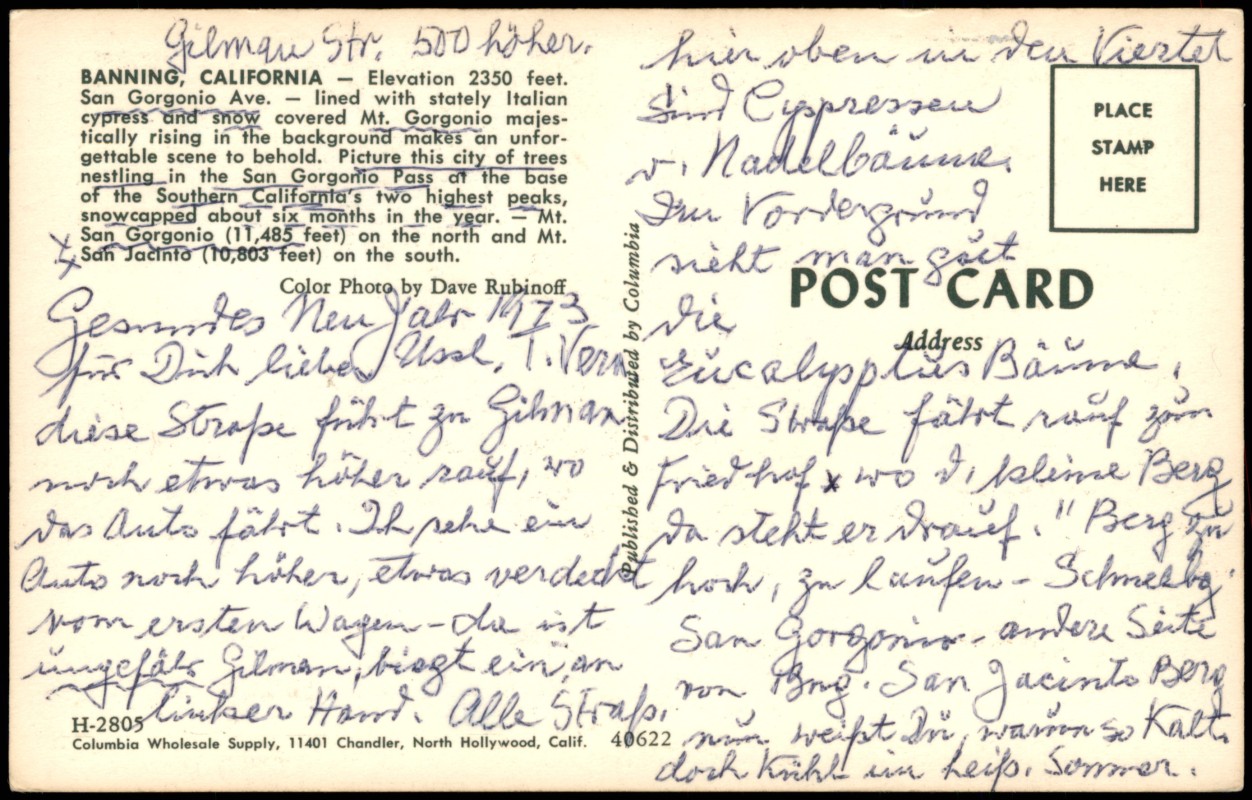 Gilman Str. 500 höher.
BANNING, CALIFORNIA — Elevation 2350 feet.
San Gorgonio Ave. — lined with stately Italian
cypress and snow covered Mt. Gorgonio majes-
tically rising in the background makes an unfor-
gettable scene to behold. Picture this city of trees
nestling in the San Gorgonio Pass at the base
of the Southern California's two highest peaks,
snowcapped about six months in the year. — Mt.
San Gorgonio (11,485 feet) on the north and Mt.
San Jacinto (10,803 feet) on the south.
Color Photo by Dave Rubinoff
Gesundes Neu Jahr 1973
für Dich lieber T. Vern
diese Straße führt zu Gilman
noch etwas höher rauf, wo
das Auto fährt. Ich sehe ein
Auto noch höher, etwas verdeckt
vom ersten Wagen - da ist
ungefähr Gilman, biegt ein, an
linker Hand. Alle Straß.
H-2805
Columbia Wholesale Supply, 11401 Chandler, North Hollywood, Calif. 40622
Published & Distributed by Columbia
hier oben in den Viertel
sind Cyppressen
v. Nadelbäume.
Im Vordergrund
sieht man gut
die
Eucalypptus Bäume.
Die Straße fährt rauf zum
Friedhof x wo d. kleine Berg
da steht er drauf. " Berg
hoch, zu laufen -
San Gorgonio - andere Seite
von Bng. San Jacinto Berg
nun weißt Du, warum so Kalt.
doch Kühl im heiß. Sommer.
PLACE
STAMP
HERE
POST CARD
Address